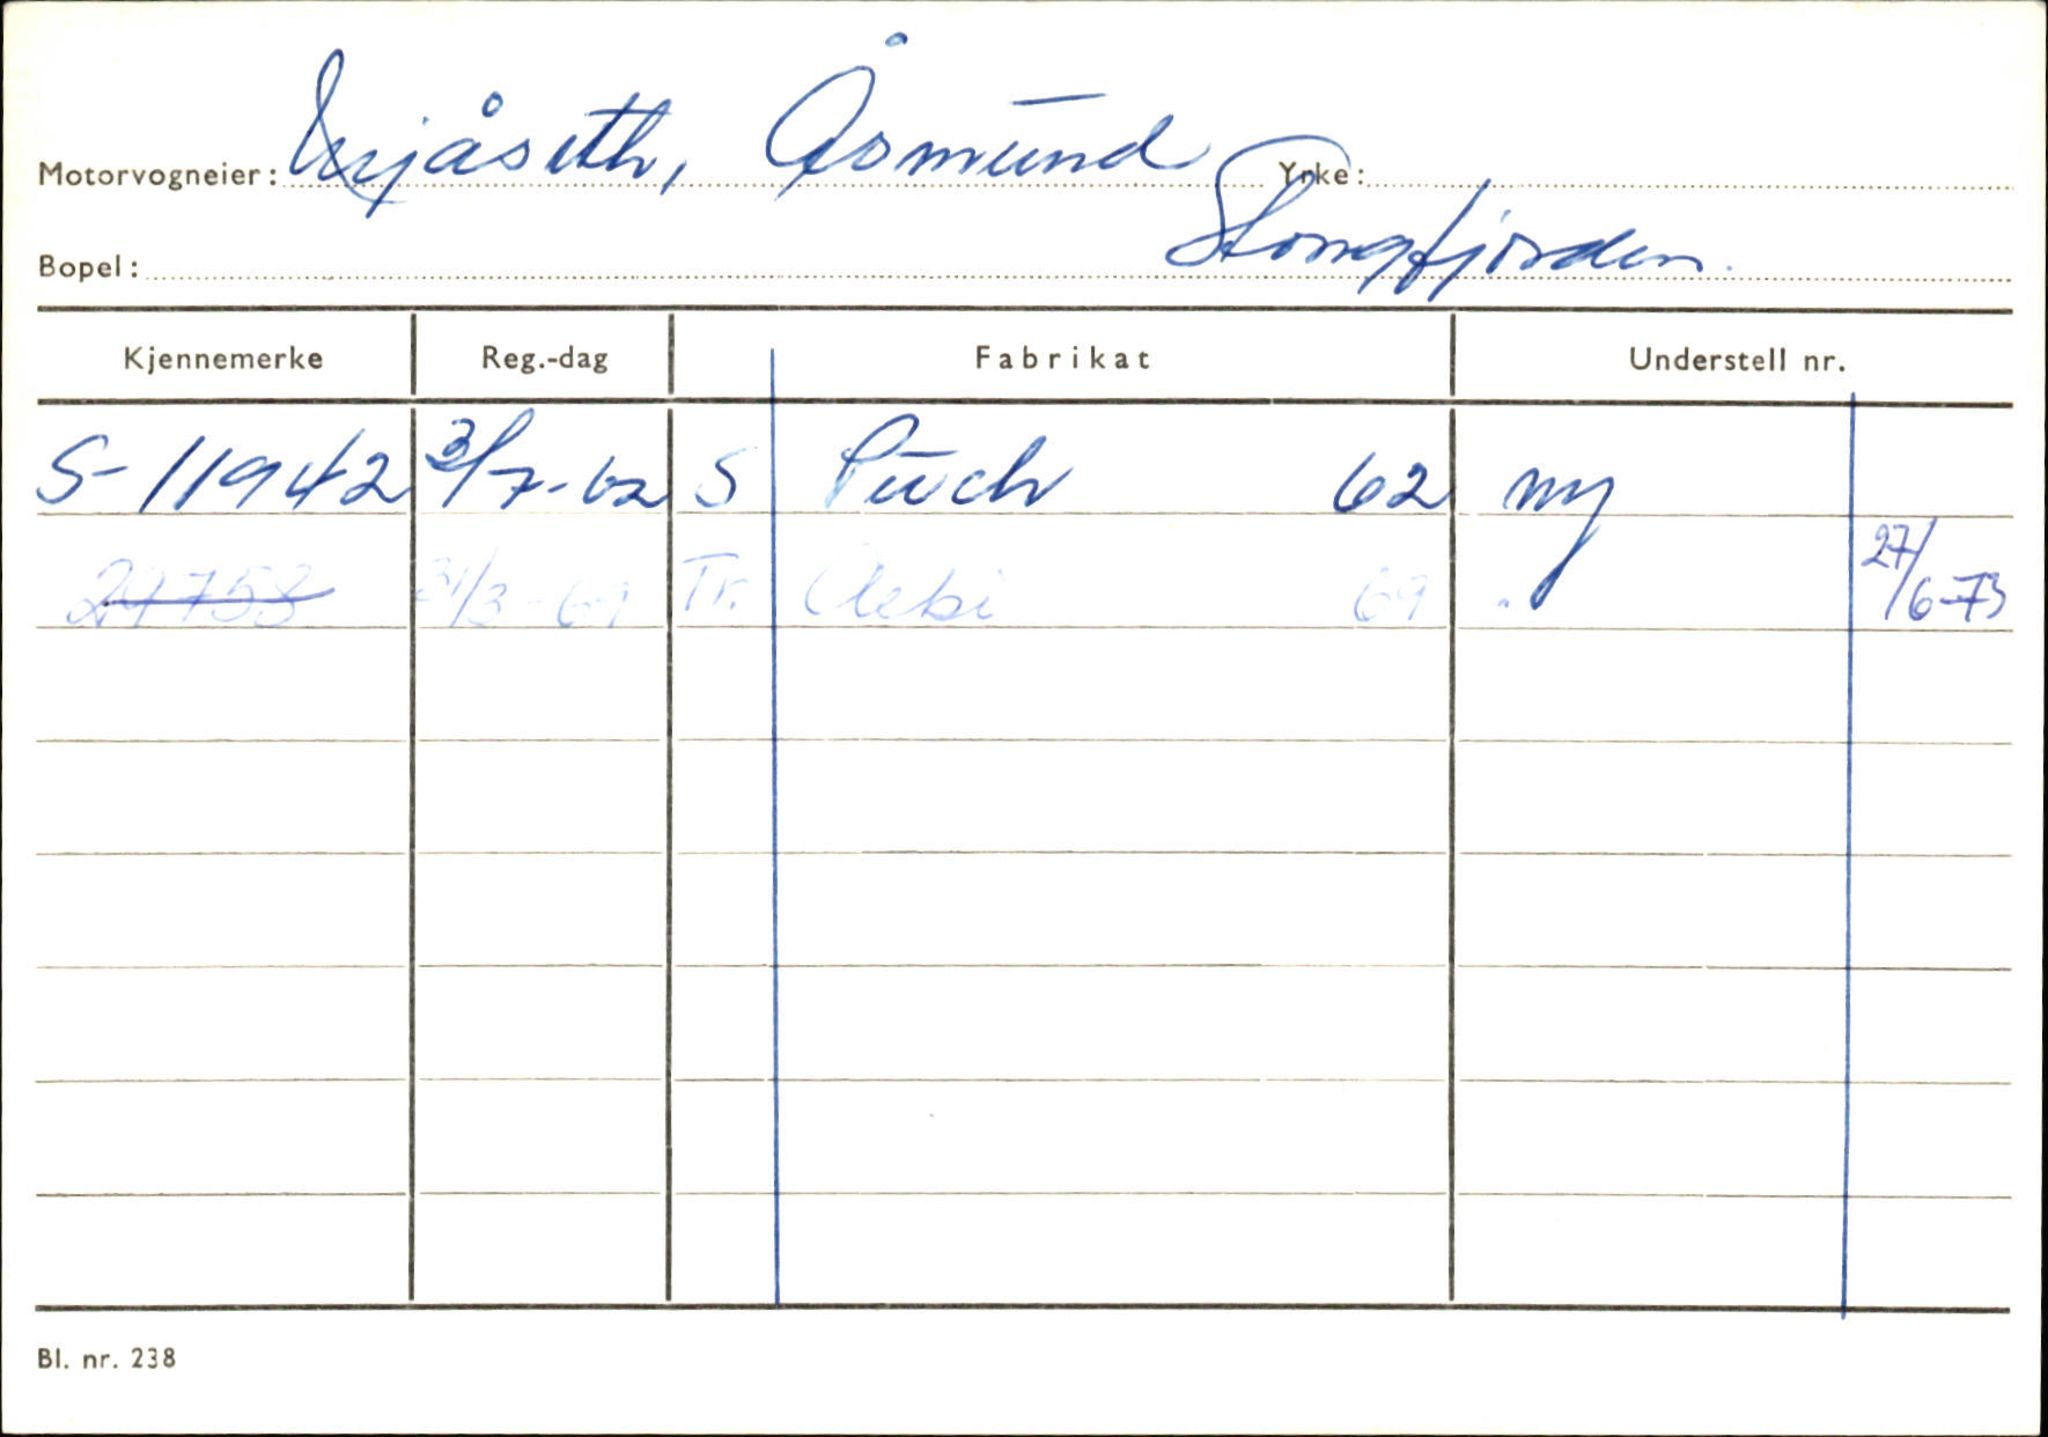 Motorvogneier: Mjåseth, Åsmund Yrke:
Bopel: Stongfjorden.
Kjennemerke Reg.-dag Fabrikat Understell nr.
S-11942 3/7-62 S Puch 62 ny
27758 21/3-69 Tr. Aebi 69 27/6-73
Bl. nr. 238